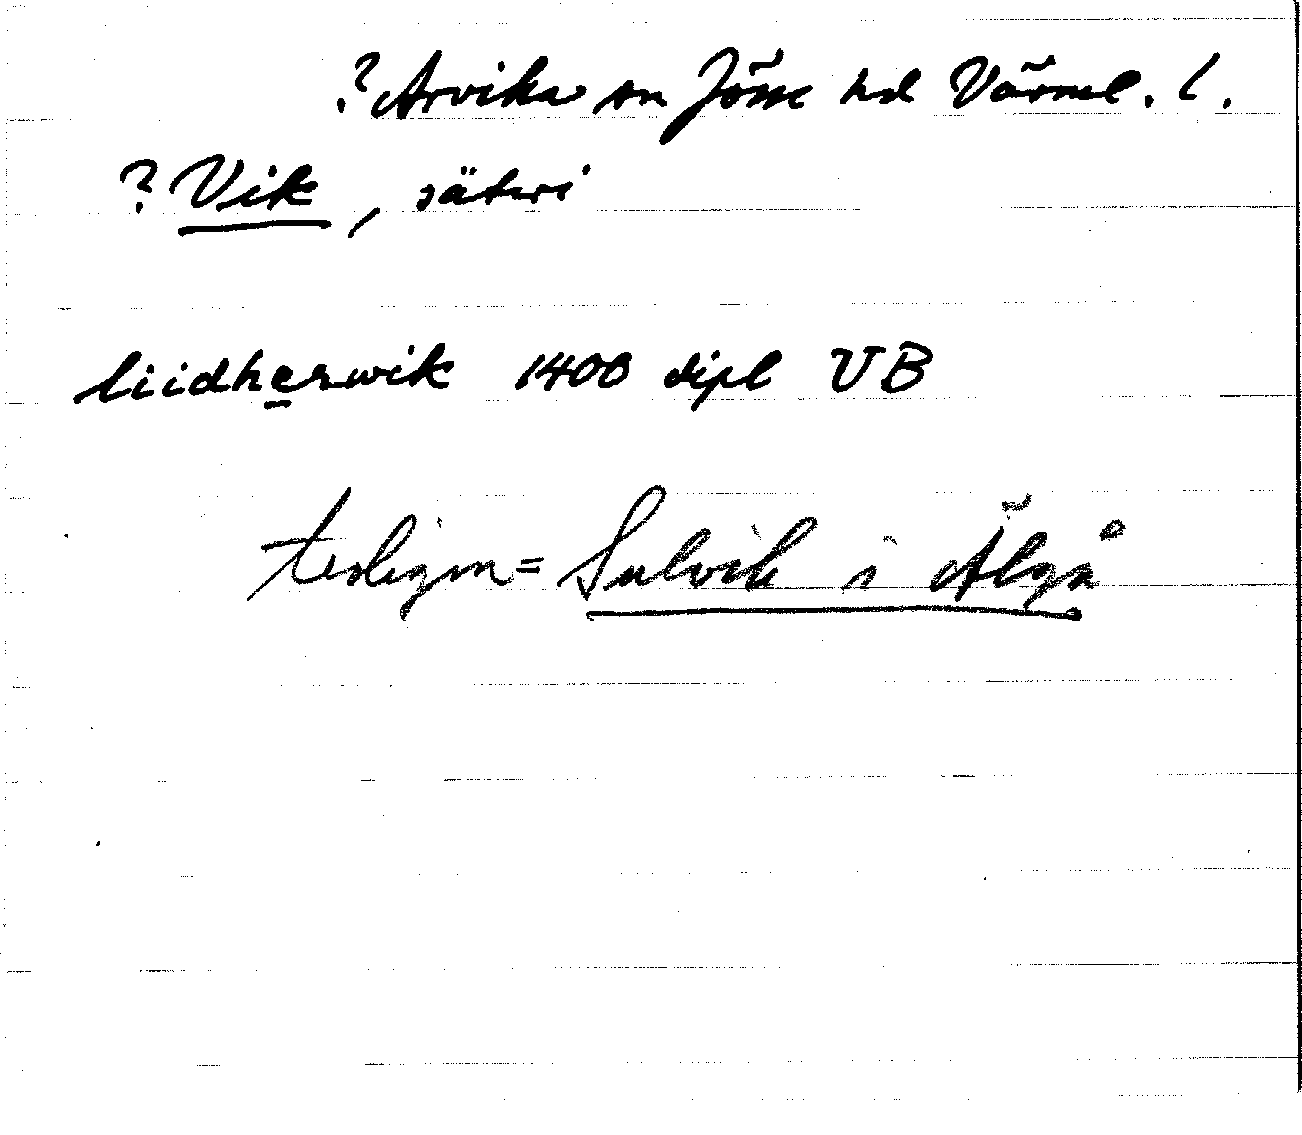 ? Arvika sn Jösse hd Värml. l.
? Vik, säteri
liidherwik 1400 dipl VB
troligen = Sulvik i Älgå